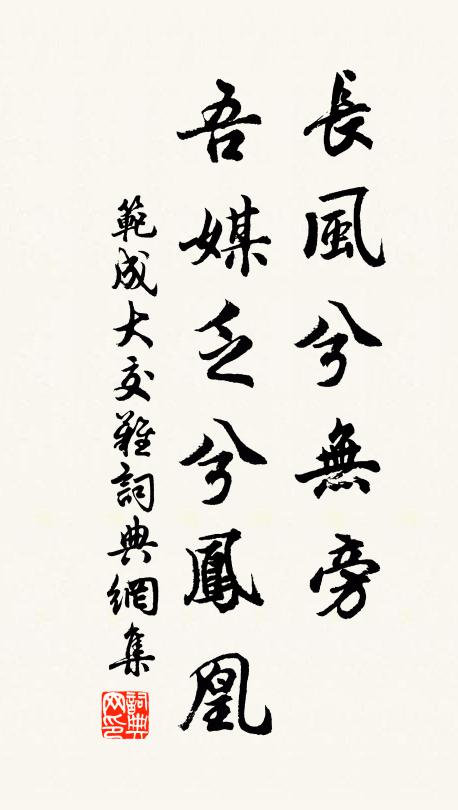 長風兮無旁
吾媒乏兮鳳凰
範成大交難詞典網集
詞典网印